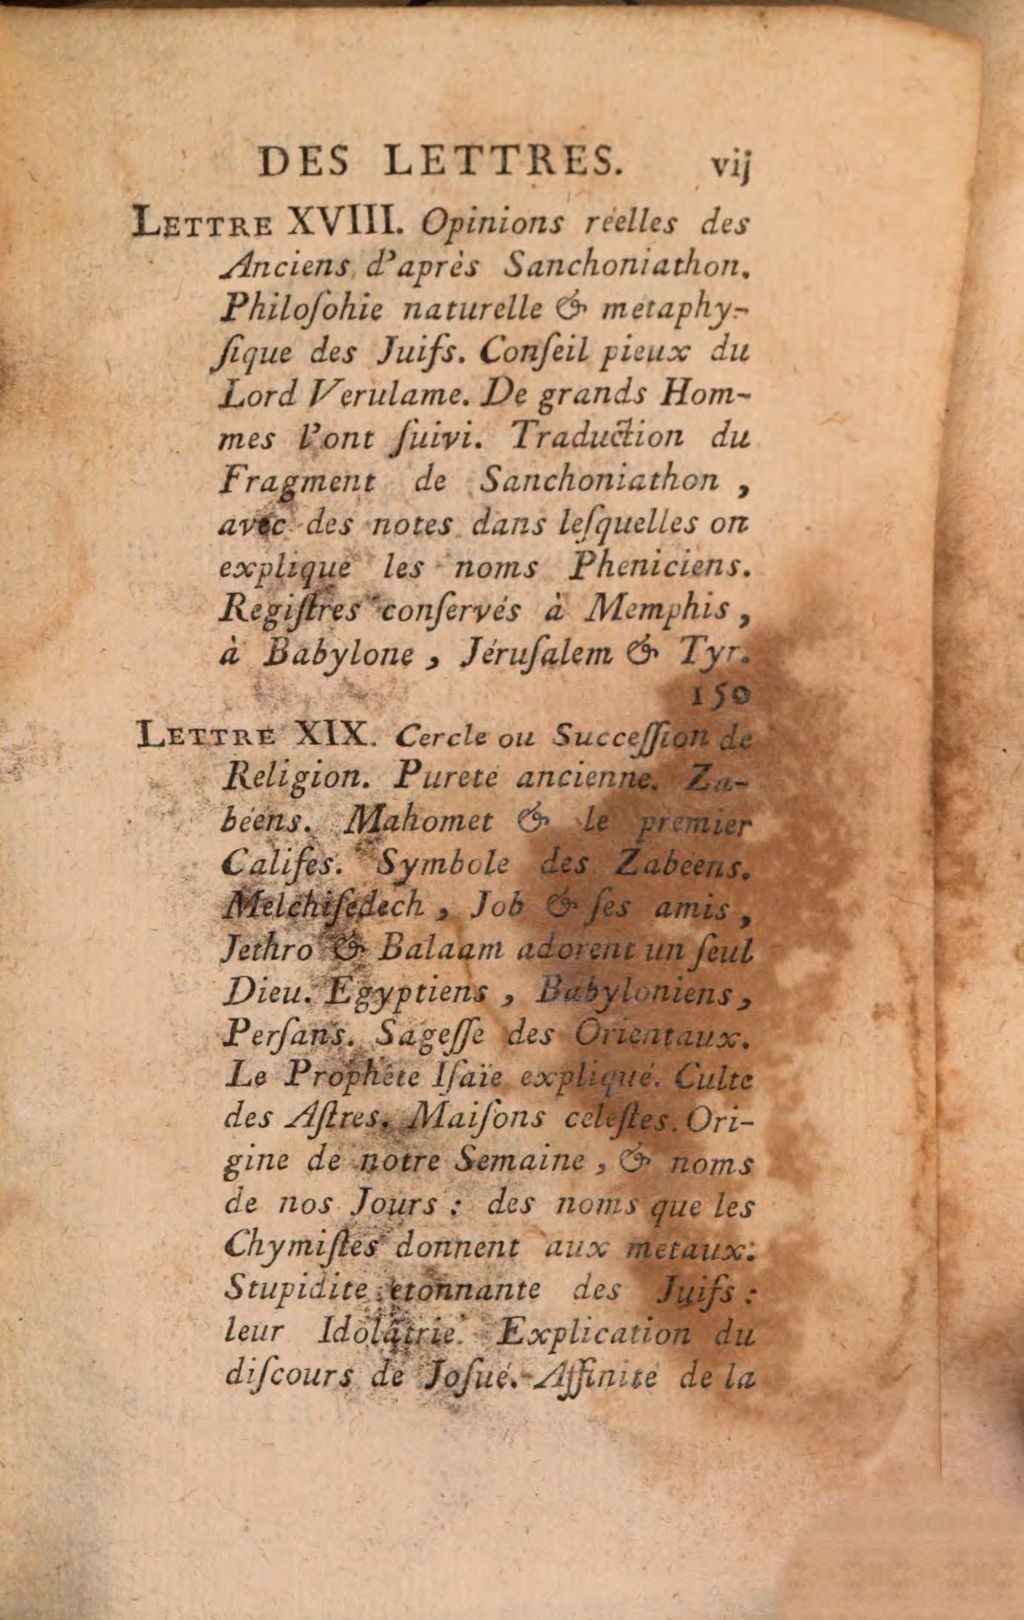 DES LETTRES. vij
LETTRE XVIII. Opinions réelles des
Anciens d'après Sanchoniathon.
Philoſohie naturelle & métaphy-
ſique des Juifs. Conſeil pieux du
Lord Verulame. De grands Hom-
mes l'ont ſuivi. Traduction du
Fragment de Sanchoniathon,
avec des notes dans leſquelles on
explique les noms Pheniciens.
Regiſtres conſervés à Memphis,
à Babylone, Jéruſalem & Tyr.
150
LETTRE XIX. Cercle ou Succeſſion de
Religion. Pureté ancienne. Za-
béens. Mahomet & le premier
Califes. Symbole des Zabéens.
Melchiſedech, Job & ſes amis,
Jethro & Balaam adorent un ſeul
Dieu. Egyptiens, Babyloniens,
Perſans. Sageſſe des Orientaux.
Le Prophète Iſaïe expliqué. Culte
des Aſtres. Maiſons céleſtes. Ori-
gine de notre Semaine, & noms
de nos Jours : des noms que les
Chymiſtes donnent aux métaux.
Stupidité étonnante des Juifs :
leur Idolâtrie. Explication du
diſcours de Joſué. Affinité de la